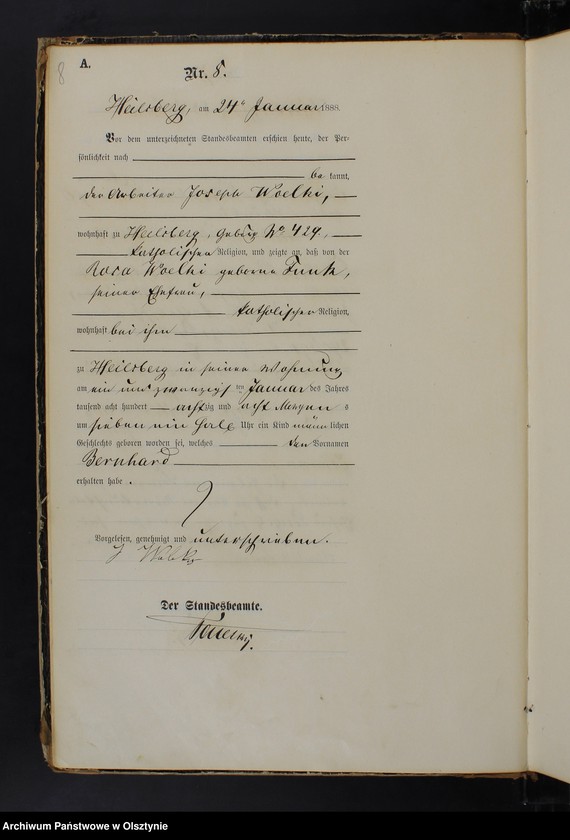 8
A.
Nr. 8.
Heilsberg, am 24ten Januar 1888.
Vor dem unterzeichneten Standesbeamten erschien heute, der Per-
sönlichkeit nach
be kannt,
der Arbeiter Joseph Woelki,
wohnhaft zu Heilsberg, No 424,
katholischer Religion, und zeigte an, daß von der
Rosa Woelki geborne Funk,
seiner Ehefrau,
katholischer Religion,
wohnhaft bei ihm
zu Heilsberg in seiner Wohnung
am ein und zwanzigsten Januar des Jahres
tausend acht hundert achtzig und acht Morgens
um sieben ein halb Uhr ein Kind männlichen
Geschlechts geboren worden sei, welches den Vornamen
Bernhard
erhalten habe.
Vorgelesen, genehmigt und unterschrieben.
J
Der Standesbeamte.
Archiwum Państwowe w Olsztynie